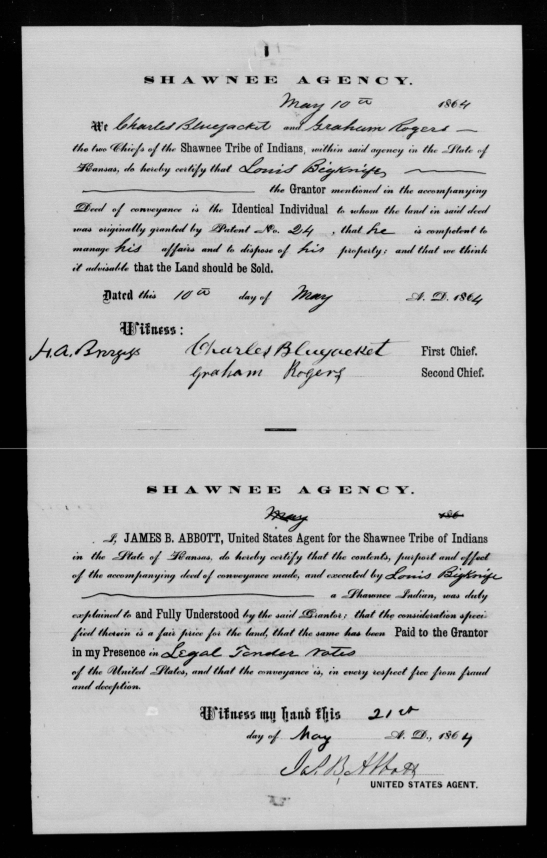 SHAWNEE AGENCY.
May 10th 1864
We Charles Bluejacket and Graham Rogers
the two Chiefs of the Shawnee Tribe of Indians, within said agency in the State of
Kansas, do hereby certify that Louis Bigknife
the Grantor mentioned in the accompanying
Deed of conveyance is the Identical Individual to whom the land in said deed
was originally granted by Patent No. 24, that he is competent to
manage his affairs and to dispose of his property; and that we think
it advisable that the Land should be Sold.
Dated this 10th day of May A. D. 1864
Witness:
H.A. Charles Bluejacket First Chief.
Graham Rogers Second Chief.
SHAWNEE AGENCY.
May 186
I, JAMES B. ABBOTT, United States Agent for the Shawnee Tribe of Indians
in the State of Kansas, do hereby certify that the contents, purport and effect
of the accompanying deed of conveyance made, and executed by Louis Bigknife
a Shawnee Indian, was duly
explained to and Fully Understood by the said Grantor; that the consideration speci-
fied therein is a fair price for the land, that the same has been Paid to the Grantor
in my Presence in Legal Tender notes
of the United States, and that the conveyance is, in every respect free from fraud
and deception.
Witness my hand this 21st
day of May A. D., 1864
Jas. B. Abbott
UNITED STATES AGENT.